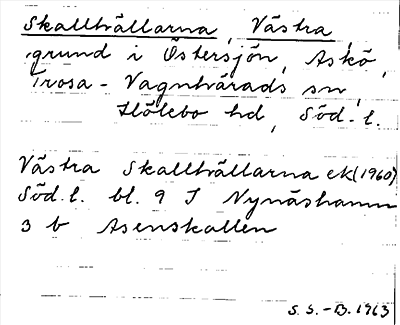 Skallhällarna, Västra,
grund i Östersjön, Askö,
Trosa-Vagnhärads sn,
Hölebo hd, Söd. l.
Västra Skallhällarna ek (1960)
Söd. l. bl. 9 I Nynäshamn
3 b Asenskallen
S. S.-B. 1963